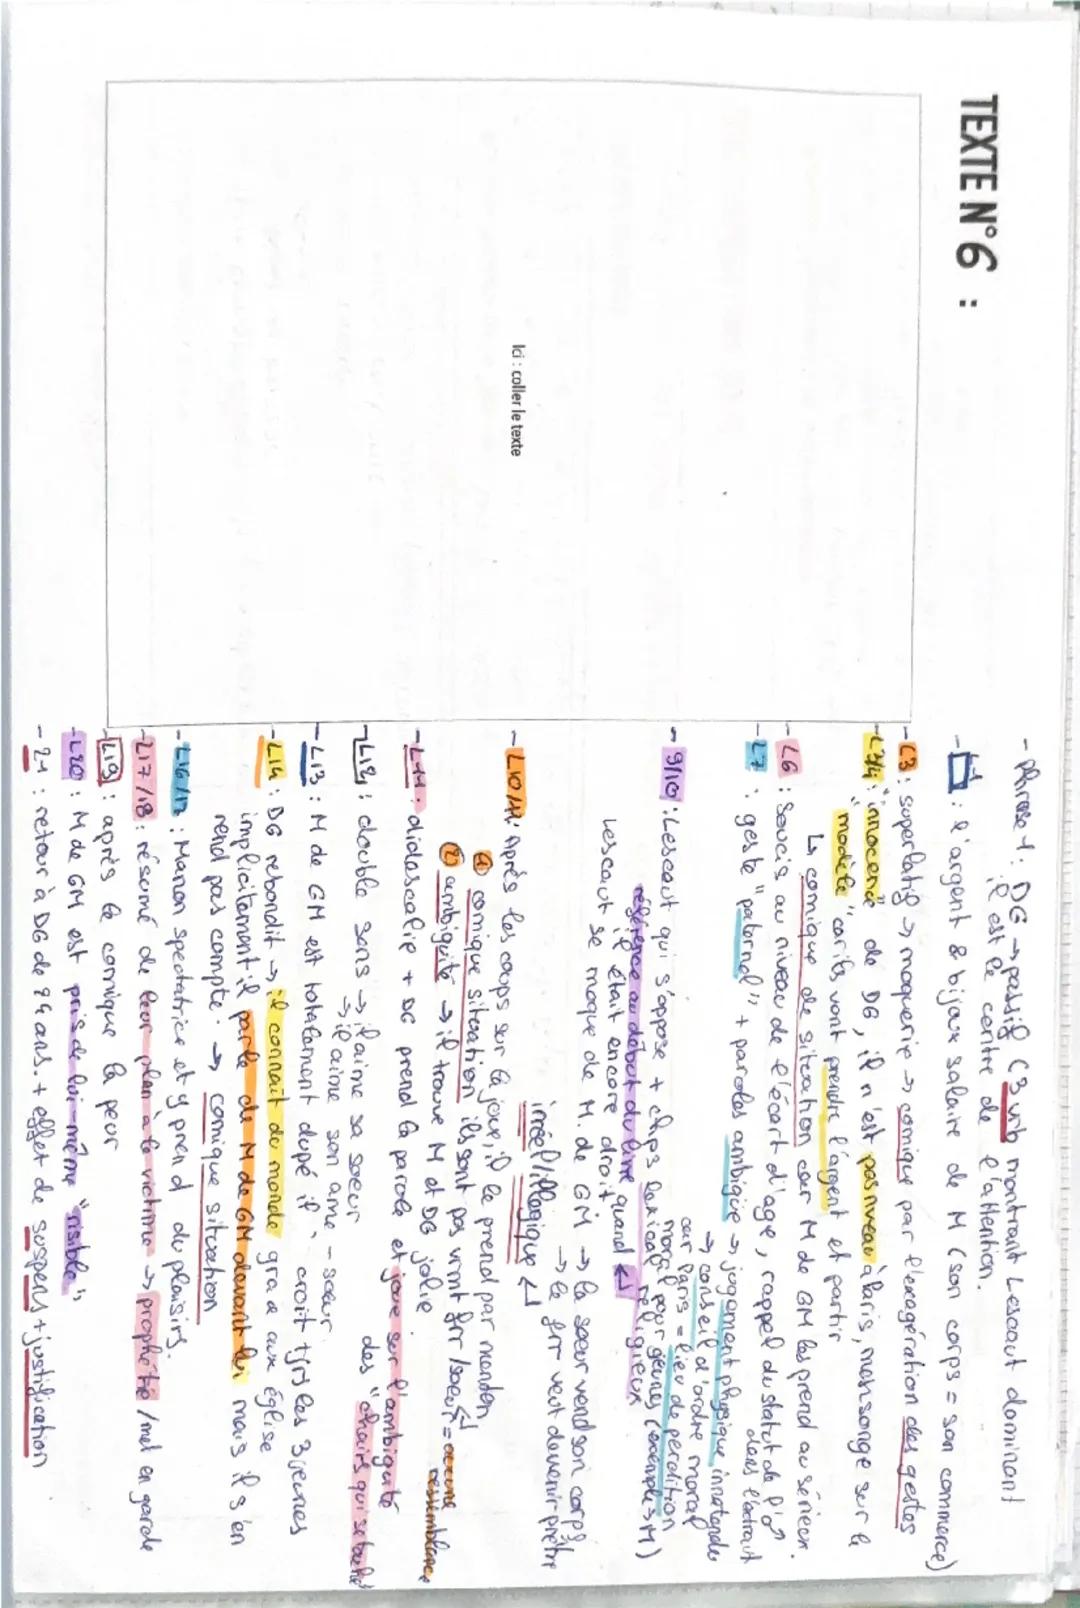 TEXTE N°6 :
Ici : coller le texte
- Phrase 1 : DG → passif (3 vrb montrant Lescaut dominant
il est le centre de l'attention.
- L1 : l'argent & bijoux salaire de M (son corps = son commerce)
- L3 : superlatif → moquerie → comique par l'exagération des gestes
- L3/4 : "innocence" de DG, il n'est pas niveau à Paris, mensonge sur le
"modèle" car ils vont prendre l'argent et partir
↳ comique de situation car M de GM les prend au sérieux.
- L6 : Soucis au niveau de l'écart d'age, rappel du statut de l'o
- L7 : geste "paternel" + paroles ambigüe → jugement physique inattendu dans l'extrait
→ conseil d'ordre moral
car Paris = lieu de perdition
moral pour jeunes (exemple → M)
- 9/10 : Lescaut qui s'oppose + chps lexical religieux
référence au début du livre quand ↵
il était encore droit
Lescaut se moque de M. de GM → la soeur vend son corps
→ le frr veut devenir prêtre
irréel/illogique ↵
- L10/11 : Après les coups sur la joue, il le prend par menton,
① comique situation ils sont pas vrmt frr/soeur ↵
② ambiguité → il trouve M et DG jolie = aucune ressemblance
- L11 : didascalie + DG prend la parole et joue sur l'ambiguité
des "chairs qui se touche"
- L12 : double sens → il aime sa soeur
→ il aime son ame-soeur
- L13 : M de GM est totalement dupé il croit tjrs les 3 jeunes
- L14 : DG rebondit → il connait du monde grace aux église
implicitement il parle de M de GM devant lui mais il s'en
rend pas compte. → comique situation
- L16/17 : Manon spectatrice et y prend du plaisirs.
- L17/18 : résumé de leur plan à la victime → prophétie / met en garde
- L19 : après le comique la peur
- L20 : M de GM est pris de lui-même "risible"
- 21 : retour à DG de 2 + ans. + effet de suspens + justification